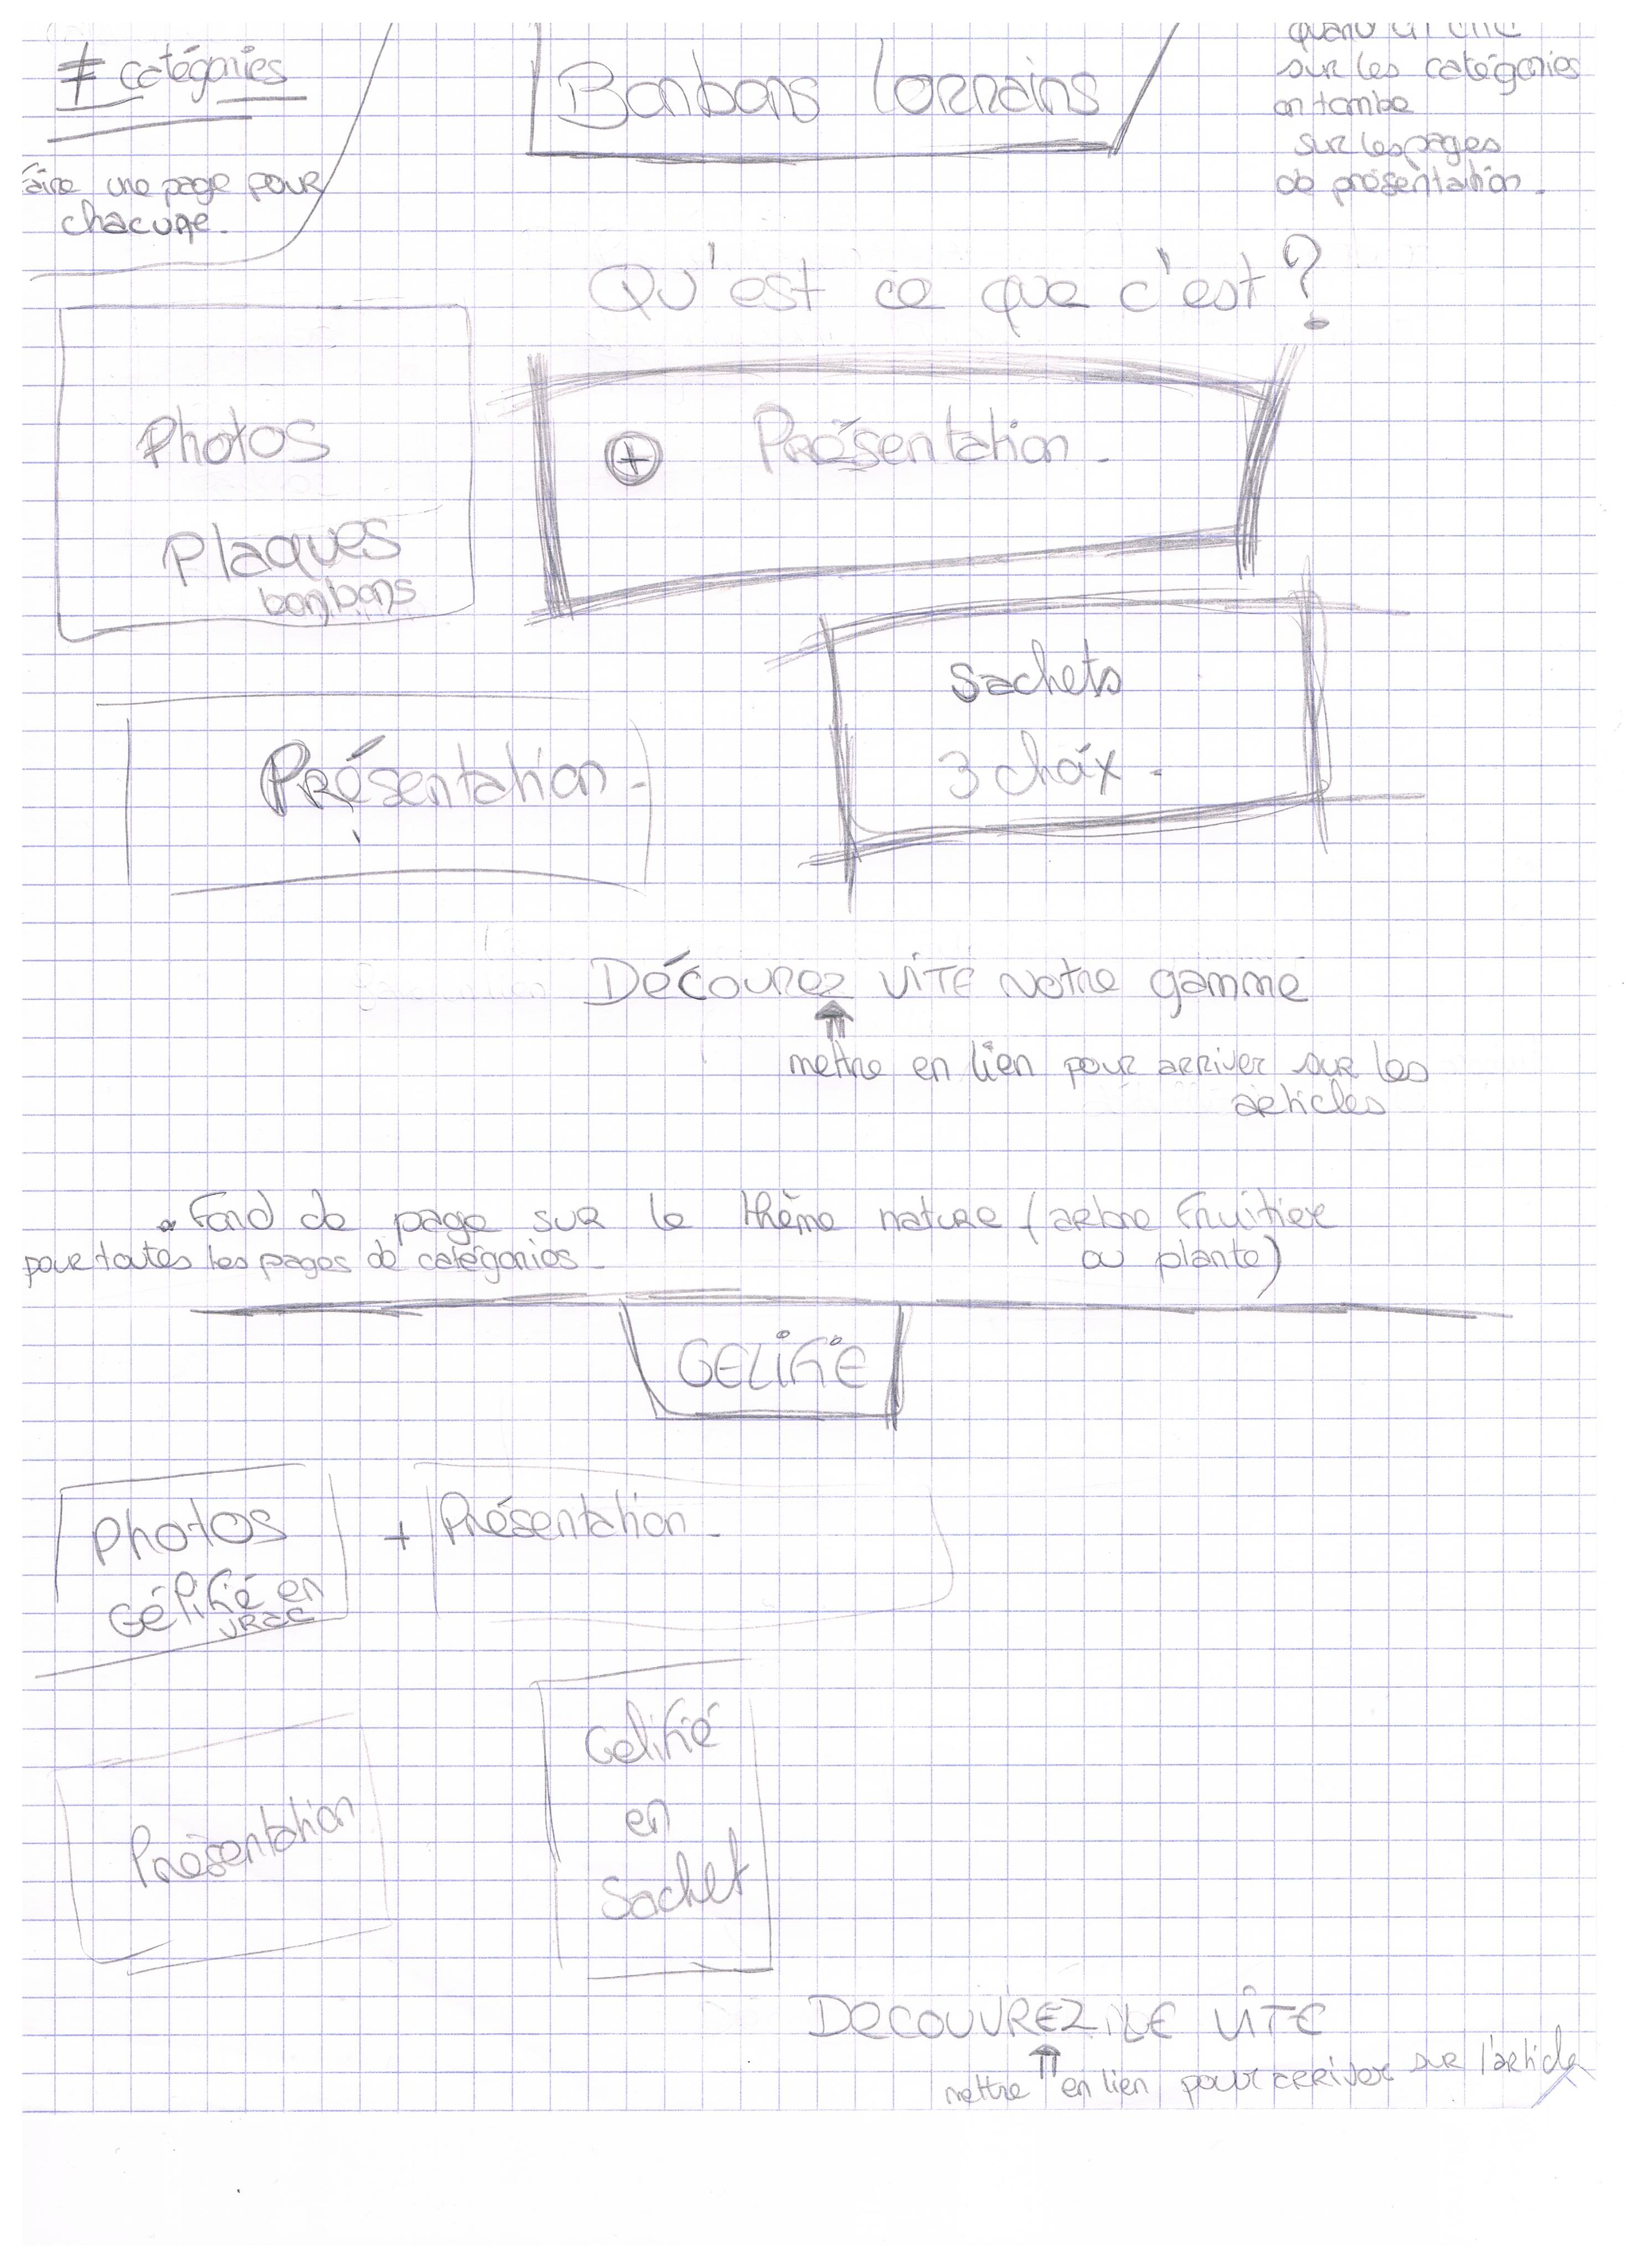 ≠ catégories
faire une page pour
chacune.
Bonbons lorrains
quand on
sur les catégories
on tombe
sur les pages
de présentation.
Qu'est ce que c'est ?
Photos
Plaques
bonbons
+ Présentation.
Présentation.
Sachets
3 choix.
Découvrez VITE Notre gamme
mettre en lien pour arriver sur les
articles
Fond de page sur le thème nature (arbre Fruitier
ou plante)
pour toutes les pages de catégories.
GELIFIE
Photos
Gélifié en
vrac
+ Présentation.
Présentation
Gelifié
en
Sachet
DECOUVREZ LE VITE
mettre en lien pour arriver sur l'article